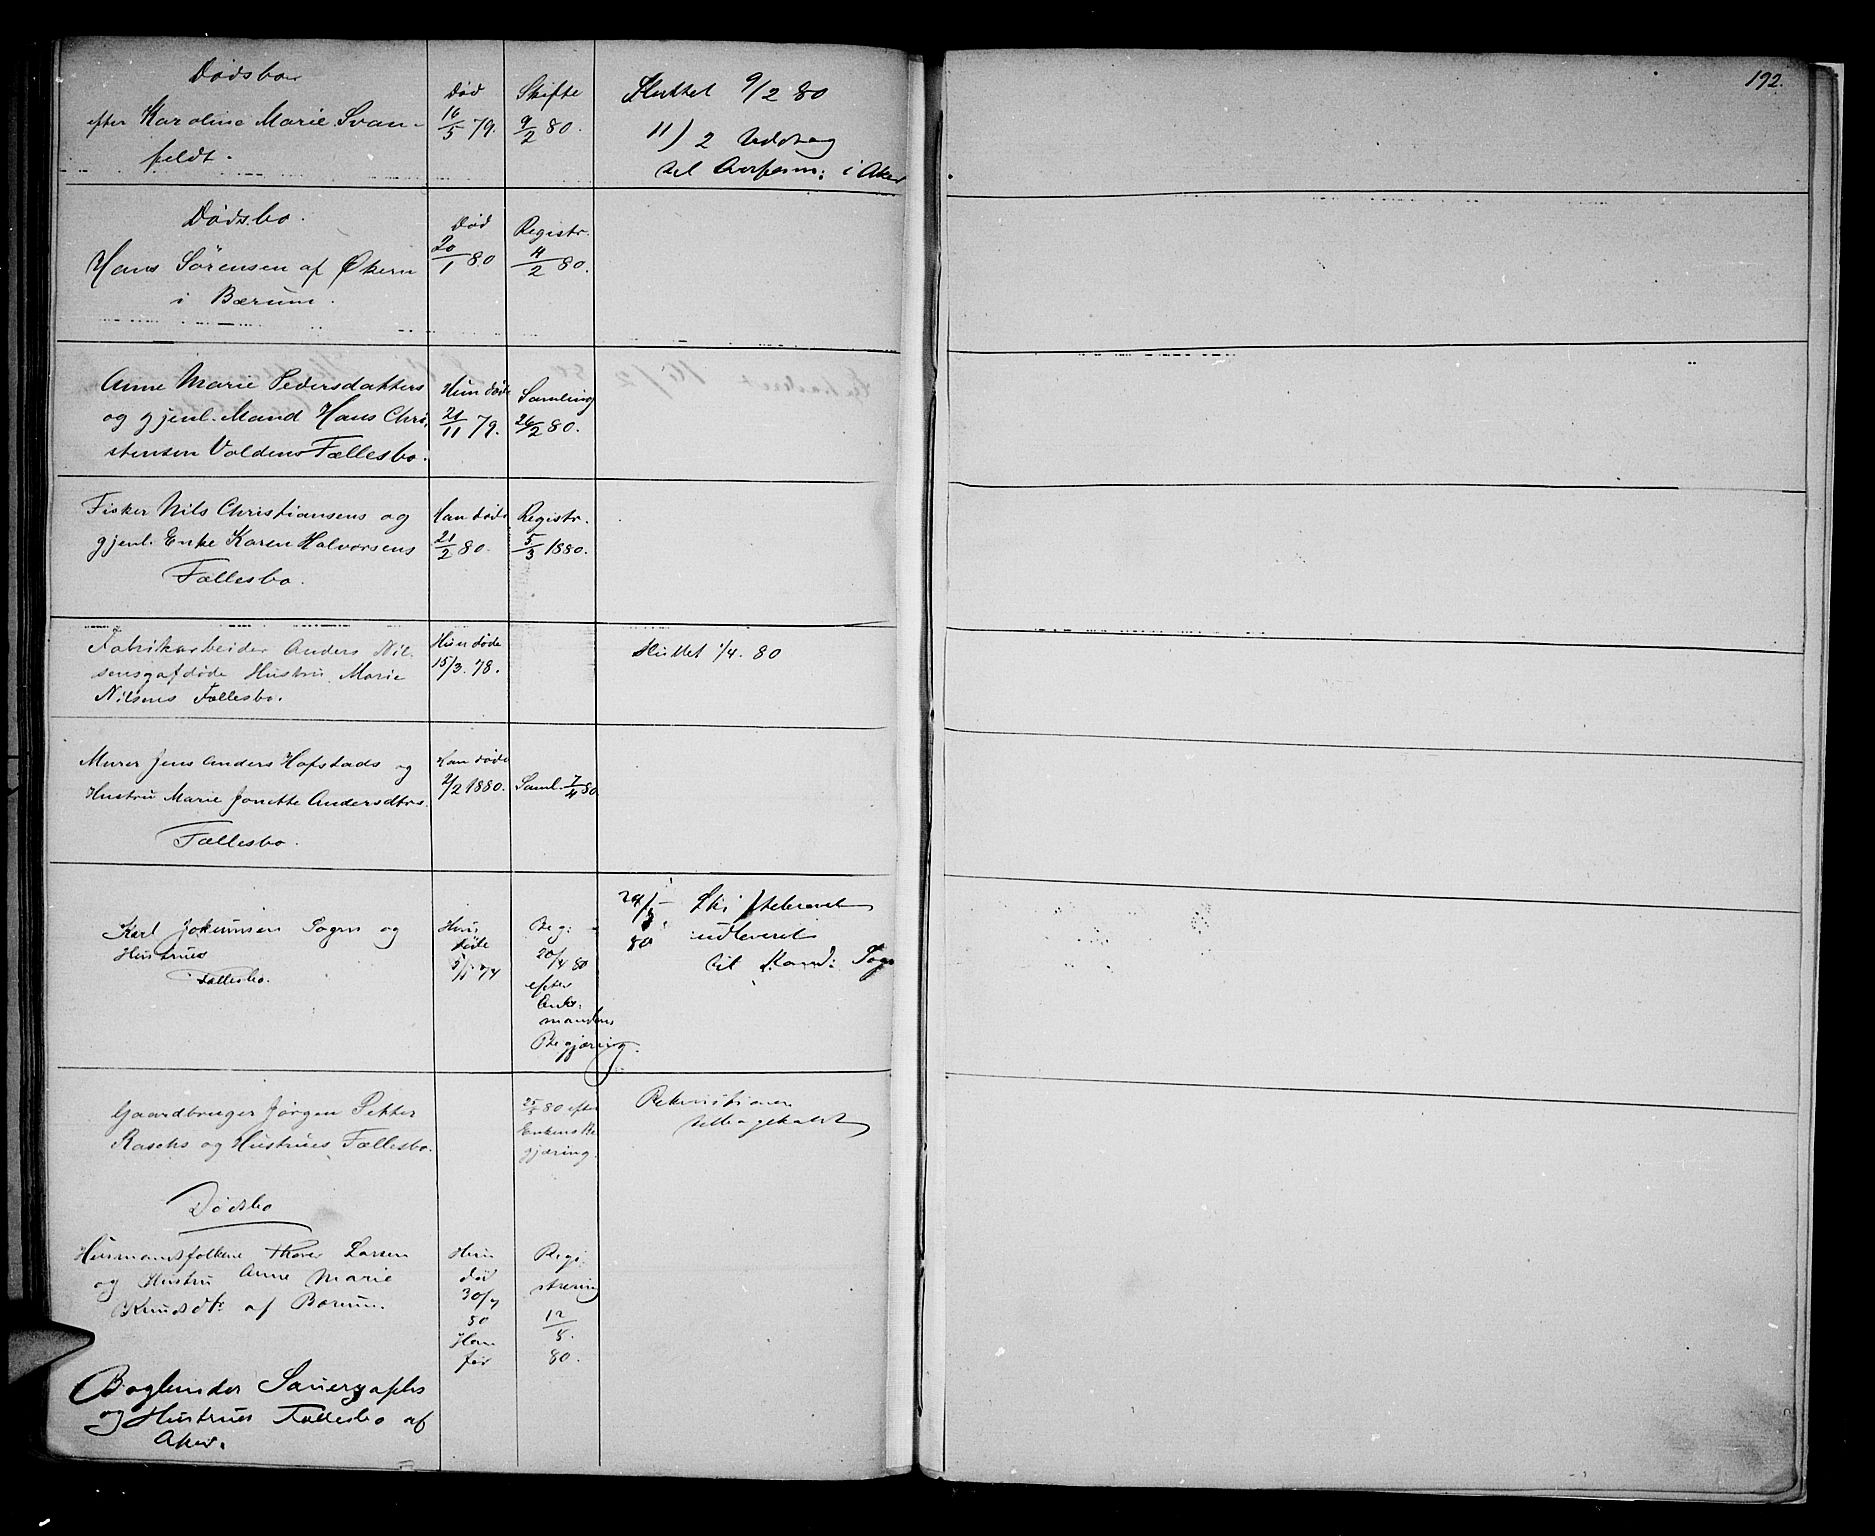 192.
Dødsbo
efter Karoline Marie Svan-
feldt.
Død
16/5 79.
Skifte
9/2 80.
Sluttet 9/2 80
11) 2 Uddrag
til i Aker
Dødsbo.
Hans Sørensen af Økern
i Bærum.
Død
20/1 80
Registr.
11/2 80.
Anne Marie Pedersdatters
og gjenl. Mand Hans Chri-
stensen Voldens Fællesbo.
Hun døde
21/11 79.
Samling
26/2 80.
Fisker Nils Christiansens og
gjenl. Enke Karen Halvorsens
Fællesbo.
Han døde
21/2 80.
Registr.
5/3 1880.
Fabrikarbeider Anders Nil-
sensogafdøde Hustru Marie
Nilsens Fællesbo.
Hun døde
15/3. 78.
Sluttet 1/4. 80
Murer Jens Anders Hofstads og
Hustru Marie Jonette Andersdtrs.
Fællesbo.
Han døde
2/2 1880.
Saml. 7/4 80
Karl Jokumsen Sogn og
Hustrues
Fællesbo.
Hun
døde
5/1 74
Beg:
20/4 80
efter
Enke-
mandens
Begjæring.
24/8 80 Skiftebrevet
udleveret
til
Gaardbruger Jørgen Petter
Raschs og Hustrues Fællesbo.
25/5 80 efter
Enkens Be
gjæring.
Rekvisitionen
tilbagekaldt
Dødsbo
Husmandsfolkene Thorer Larsen
og Hustru Anne Marie
Knudsdtr af Bærum.
Hun
død
30/7
80
Han
før
Regi-
strering
12/8.
80.
Bogbinder
og Hustrues Fællesbo af
Aker.